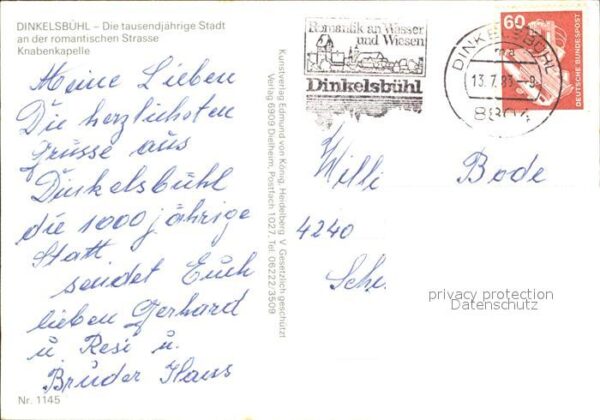 DINKELSBÜHL – Die tausendjährige Stadt
an der romantischen Strasse
Knabenkapelle
Meine Lieben
Die herzlichsten
Grüsse aus
Dinkelsbühl
die 1000 jährige
Statt.
sendet Euch
lieben Gerhard
u. Resi u.
Bruder Hans
Nr. 1145
Kunstverlag Edmund von König, Heidelberg. V Gesetzlich geschützt
Verlag 6909 Dielheim, Postfach 1027, Tel. 06222/3509
Romantik an Wasser
und Wiesen
Dinkelsbühl
DINKELSBÜHL
13.7.83-9
8804
60
DEUTSCHE BUNDESPOST
Willi Bode
4240
privacy protection
Datenschutz